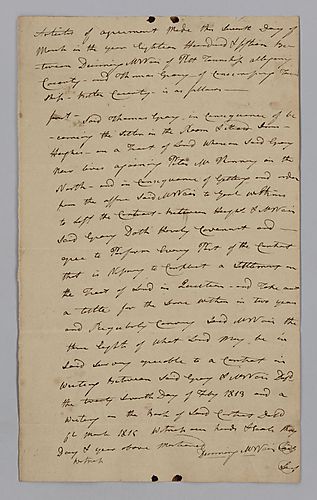 Articles of agreement Made this Seventh Day of
March in the year Eighteen Hundred & fifteen Be-
-tween Dunning McNair of Plot Township allegeny
County - and Thomas Gray of Town
Ship - Butler County - is as follows -
first Said Thomas Gray, in Consequence of be
-coming the Settler in the Room & Stead
Hughes - on a Tract of Land Whereon Said Gray
Now lives ajoining Peter McKinney on the
North - and in Consequence of Getting and order
from the office Said McNair to
to left the Contract between & McNair
Said Gray Doth Hereby Covenant and -
agree to Perform Every Part of the Contract
that is Nessary to Compleat a Settlement on
the Tract of Land in Question - and Take out
a title for the Same within in two years
and Regularly Convey Said McNair the
three Eights of What Land May be in
Said Survey agreeable to a Contract in
Writing between Said Gray & McNair Dated
the twenty Seventh Day of Feby 1813 and a
Writing on the Back of Said Contract Dated
March 1815 Witness our hands & Seals the
Day & year above
Witness Dunning McNair Seal
Seal